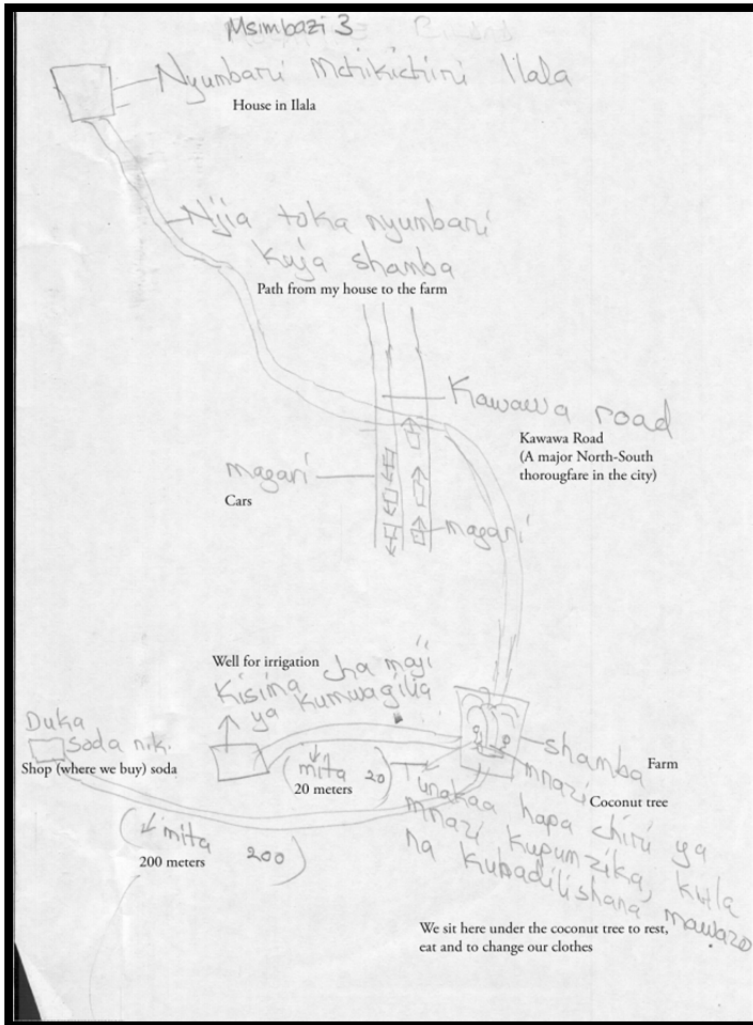 Msimbazi 3
Nyumbani Mchikichini Ilala
House in Ilala
Njia toka nyumbani
kuja shamba
Path from my house to the farm
Kawawa road
Kawawa Road
(A major North-South
thorougfare in the city)
magari
Cars
magari
Well for irrigation
Kisima cha maji
ya kumwagilia
Duka
soda n.k.
Shop (where we buy) soda
(mita 20)
20 meters
shamba
Farm
mnazi
Coconut tree
Tunakaa hapa chini ya
mnazi kupumzika, kula
na kubadilishana mawazo
(mita 200)
200 meters
We sit here under the coconut tree to rest,
eat and to change our clothes